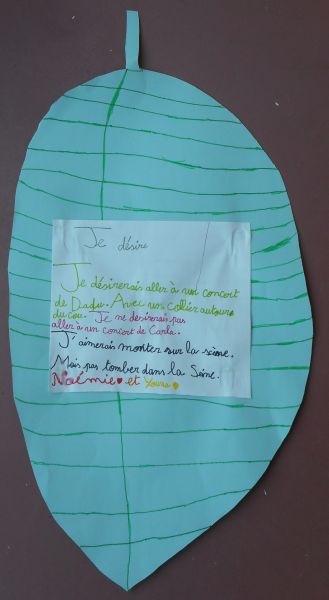 Je désire
Je désirerais aller à un concert
de Dadju. Avec un collier autour
du cou. Je ne désirerais pas
aller à un concert de Carla.
J'aimerais monter sur la scène.
Mais pas tomber dans la Seine.
Noémie et Youra